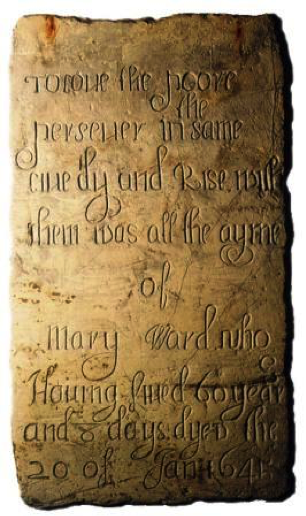 TO love the poore
the
persever in same
live dy and Rise with
them was all the ayme
of
Mary Ward who
Having lived 60 year
and 8 days dyed the
20 of Jan 1641